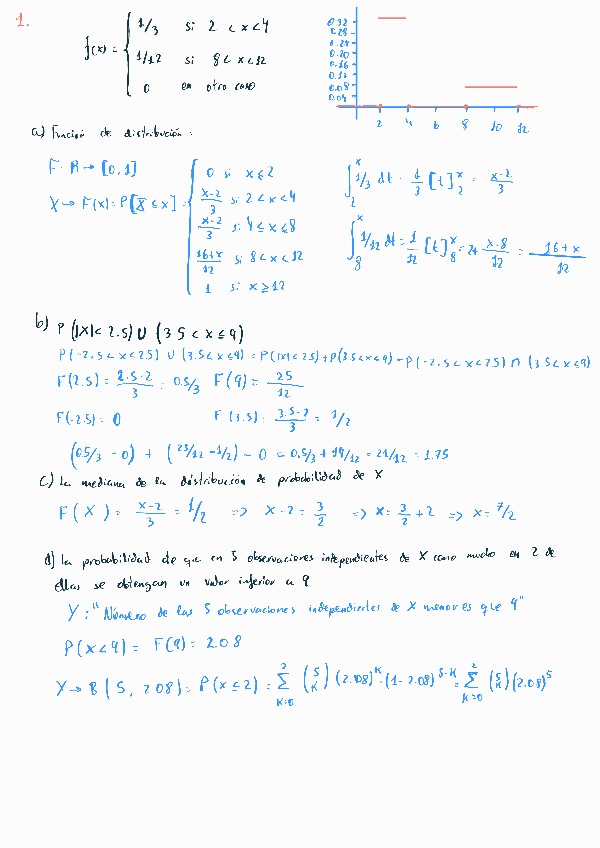 1.
f(x) = { 1/3 si 2 < x < 4
1/12 si 8 < x < 12
0 en otro caso
0.32
0.28
0.24
0.20
0.16
0.12
0.08
0.04
2 4 6 8 10 12
a) Función de distribución:
F: R → [0,1]
X → F(x) = P[X ≤ x] = { 0 si x ≤ 2
x-2/3 si 2 < x < 4
x-2/3 si 4 ≤ x ≤ 8
16+x/12 si 8 < x < 12
1 si x ≥ 12
∫₂ˣ 1/3 dt = 1/3 [t]₂ˣ = x-2/3
∫₈ˣ 1/12 dt = 1/12 [t]₈ˣ = 2+ x-8/12 = 16+x/12
b) P(|X| < 2.5) U (3.5 < x ≤ 9)
P(-2.5 < x < 2.5) U (3.5 < x < 9) = P(|X| < 2.5) + P(3.5 < x < 9) - P(-2.5 < x < 2.5) ∩ (3.5 < x < 9)
F(2.5) = 2.5-2/3 = 0.5/3 F(9) = 25/12
F(-2.5) = 0 F(3.5) = 3.5-2/3 = 1/2
(0.5/3 - 0) + (25/12 - 1/2) - 0 = 0.5/3 + 19/12 = 21/12 = 1.75
c) La mediana de la distribución de probabilidad de X
F(X) = x-2/3 = 1/2 => x-2 = 3/2 => x = 3/2 + 2 => x = 7/2
d) La probabilidad de que en 5 observaciones independientes de X como mucho en 2 de
ellas se obtengan un valor inferior a 9
Y: "Número de las 5 observaciones independientes de X menores que 9"
P(X < 9) = F(9) = 2.08
Y → B(5, 2.08) = P(X ≤ 2) = ∑ₖ₌₀² (5 K) (2.08)ᴷ · (1-2.08)⁵⁻ᴷ = ∑ₖ₌₀² (5 K) (2.08)⁵